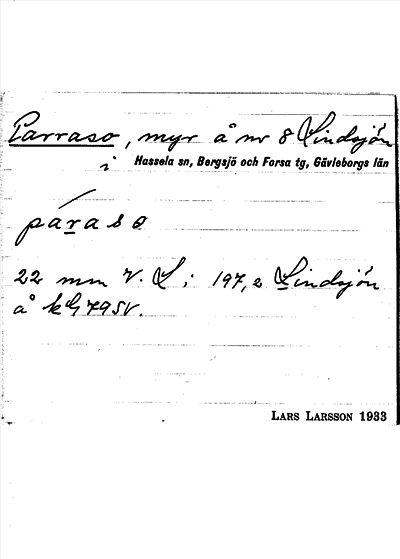 Parraso, myr å nr 8 Lindsjön
i Hassela sn, Bergsjö och Forsa tg, Gävleborgs län
páraso
22 mm V. L; 197,2 Lindsjön
å kbl 79 SV.
LARS LARSSON 1933